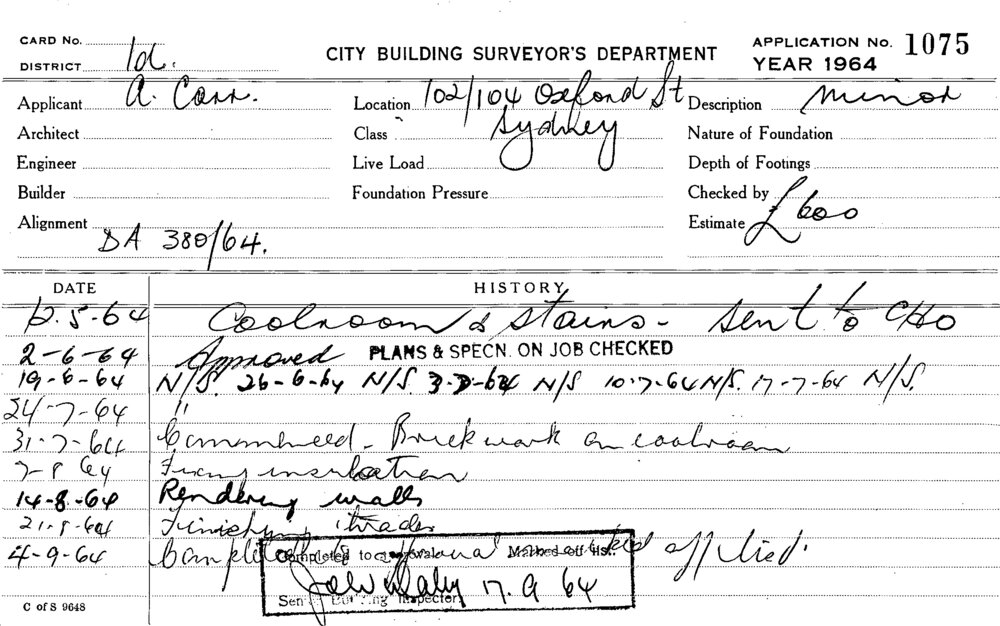 CARD No.
DISTRICT Id.
CITY BUILDING SURVEYOR'S DEPARTMENT
APPLICATION No. 1075
YEAR 1964
Applicant A. Carr.
Location 102/104 Oxford St
Sydney
Description Minor
Architect
Class
Nature of Foundation
Engineer
Live Load
Depth of Footings
Builder
Foundation Pressure
Checked by
Alignment
Estimate £600
DA 380/64.
DATE
HISTORY
12.5-64 Coolroom & Stairs - sent to CHO
2-6-64 Approved PLANS & SPECN. ON JOB CHECKED
19-6-64 N/S. 26-6-64 N/S. 3-7-64 N/S 10-7-64 N/S. 17-7-64 N/S.
24-7-64 "
31-7-64 Commenced - Brickwork on coolroom
7-8-64 Fixing insulation
14-8-64 Rendering walls
21-8-64 Finishing trades
4-9-64 Completed applied.
Completed to approval Marked off list.
17.9 64
Senior Building Inspector
C of S 9648